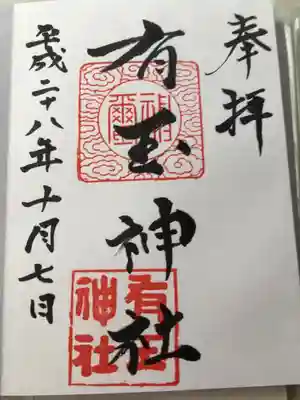 奉拝
有玉神社
平成二十八年十月七日
神璽
有玉神社